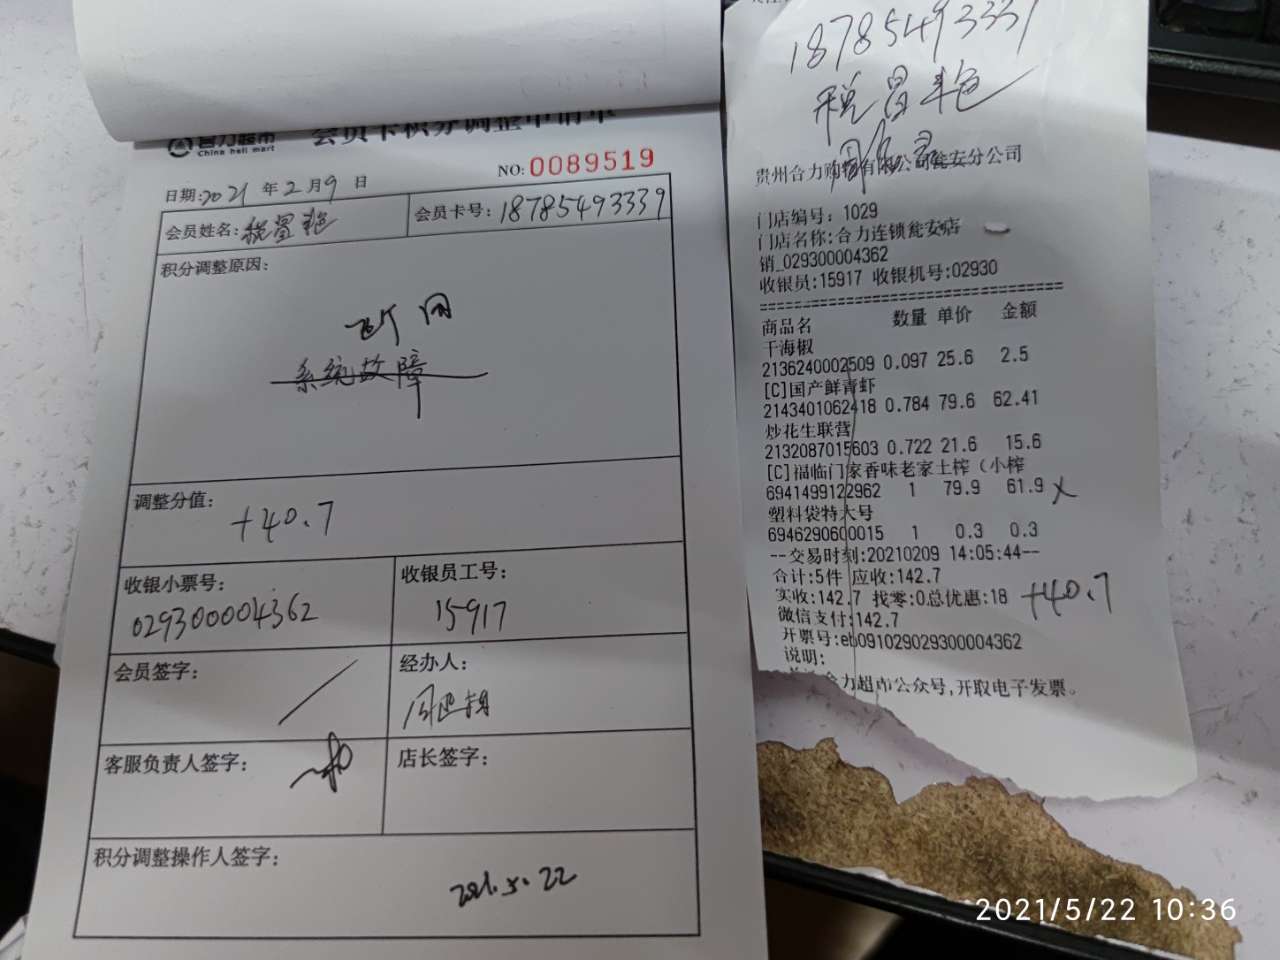 合力超市
China holi mart
会员卡积分调整申请单
NO: 0089519
日期:2021 年 2 月 9 日
会员姓名: 税昌艳
会员卡号: 18785493339
积分调整原因:
断网
系统故障
调整分值:
+40.7
收银小票号:
029300004362
收银员工号:
15917
会员签字:
经办人:
客服负责人签字:
店长签字:
积分调整操作人签字:
2021.5.22
18785493339
税昌艳
贵州合力购物有限公司瓮安分公司
门店编号: 1029
门店名称:合力连锁瓮安店
销_029300004362
收银员:15917 收银机号:02930
商品名 数量 单价 金额
干海椒
2136240002509 0.097 25.6 2.5
[C]国产鲜青虾
2143401062418 0.784 79.6 62.41
炒花生联营
2132087015603 0.722 21.6 15.6
[C]福临门家香味老家土榨（小榨
6941499122962 1 79.9 61.9 X
塑料袋特大号
6946290600015 1 0.3 0.3
--交易时刻:20210209 14:05:44--
合计:5件 应收:142.7
实收:142.7 找零:0总优惠:18 +40.7
微信支付:142.7
开票号:eb091029029300004362
说明:
合力超市公众号,开取电子发票。
2021/5/22 10:36